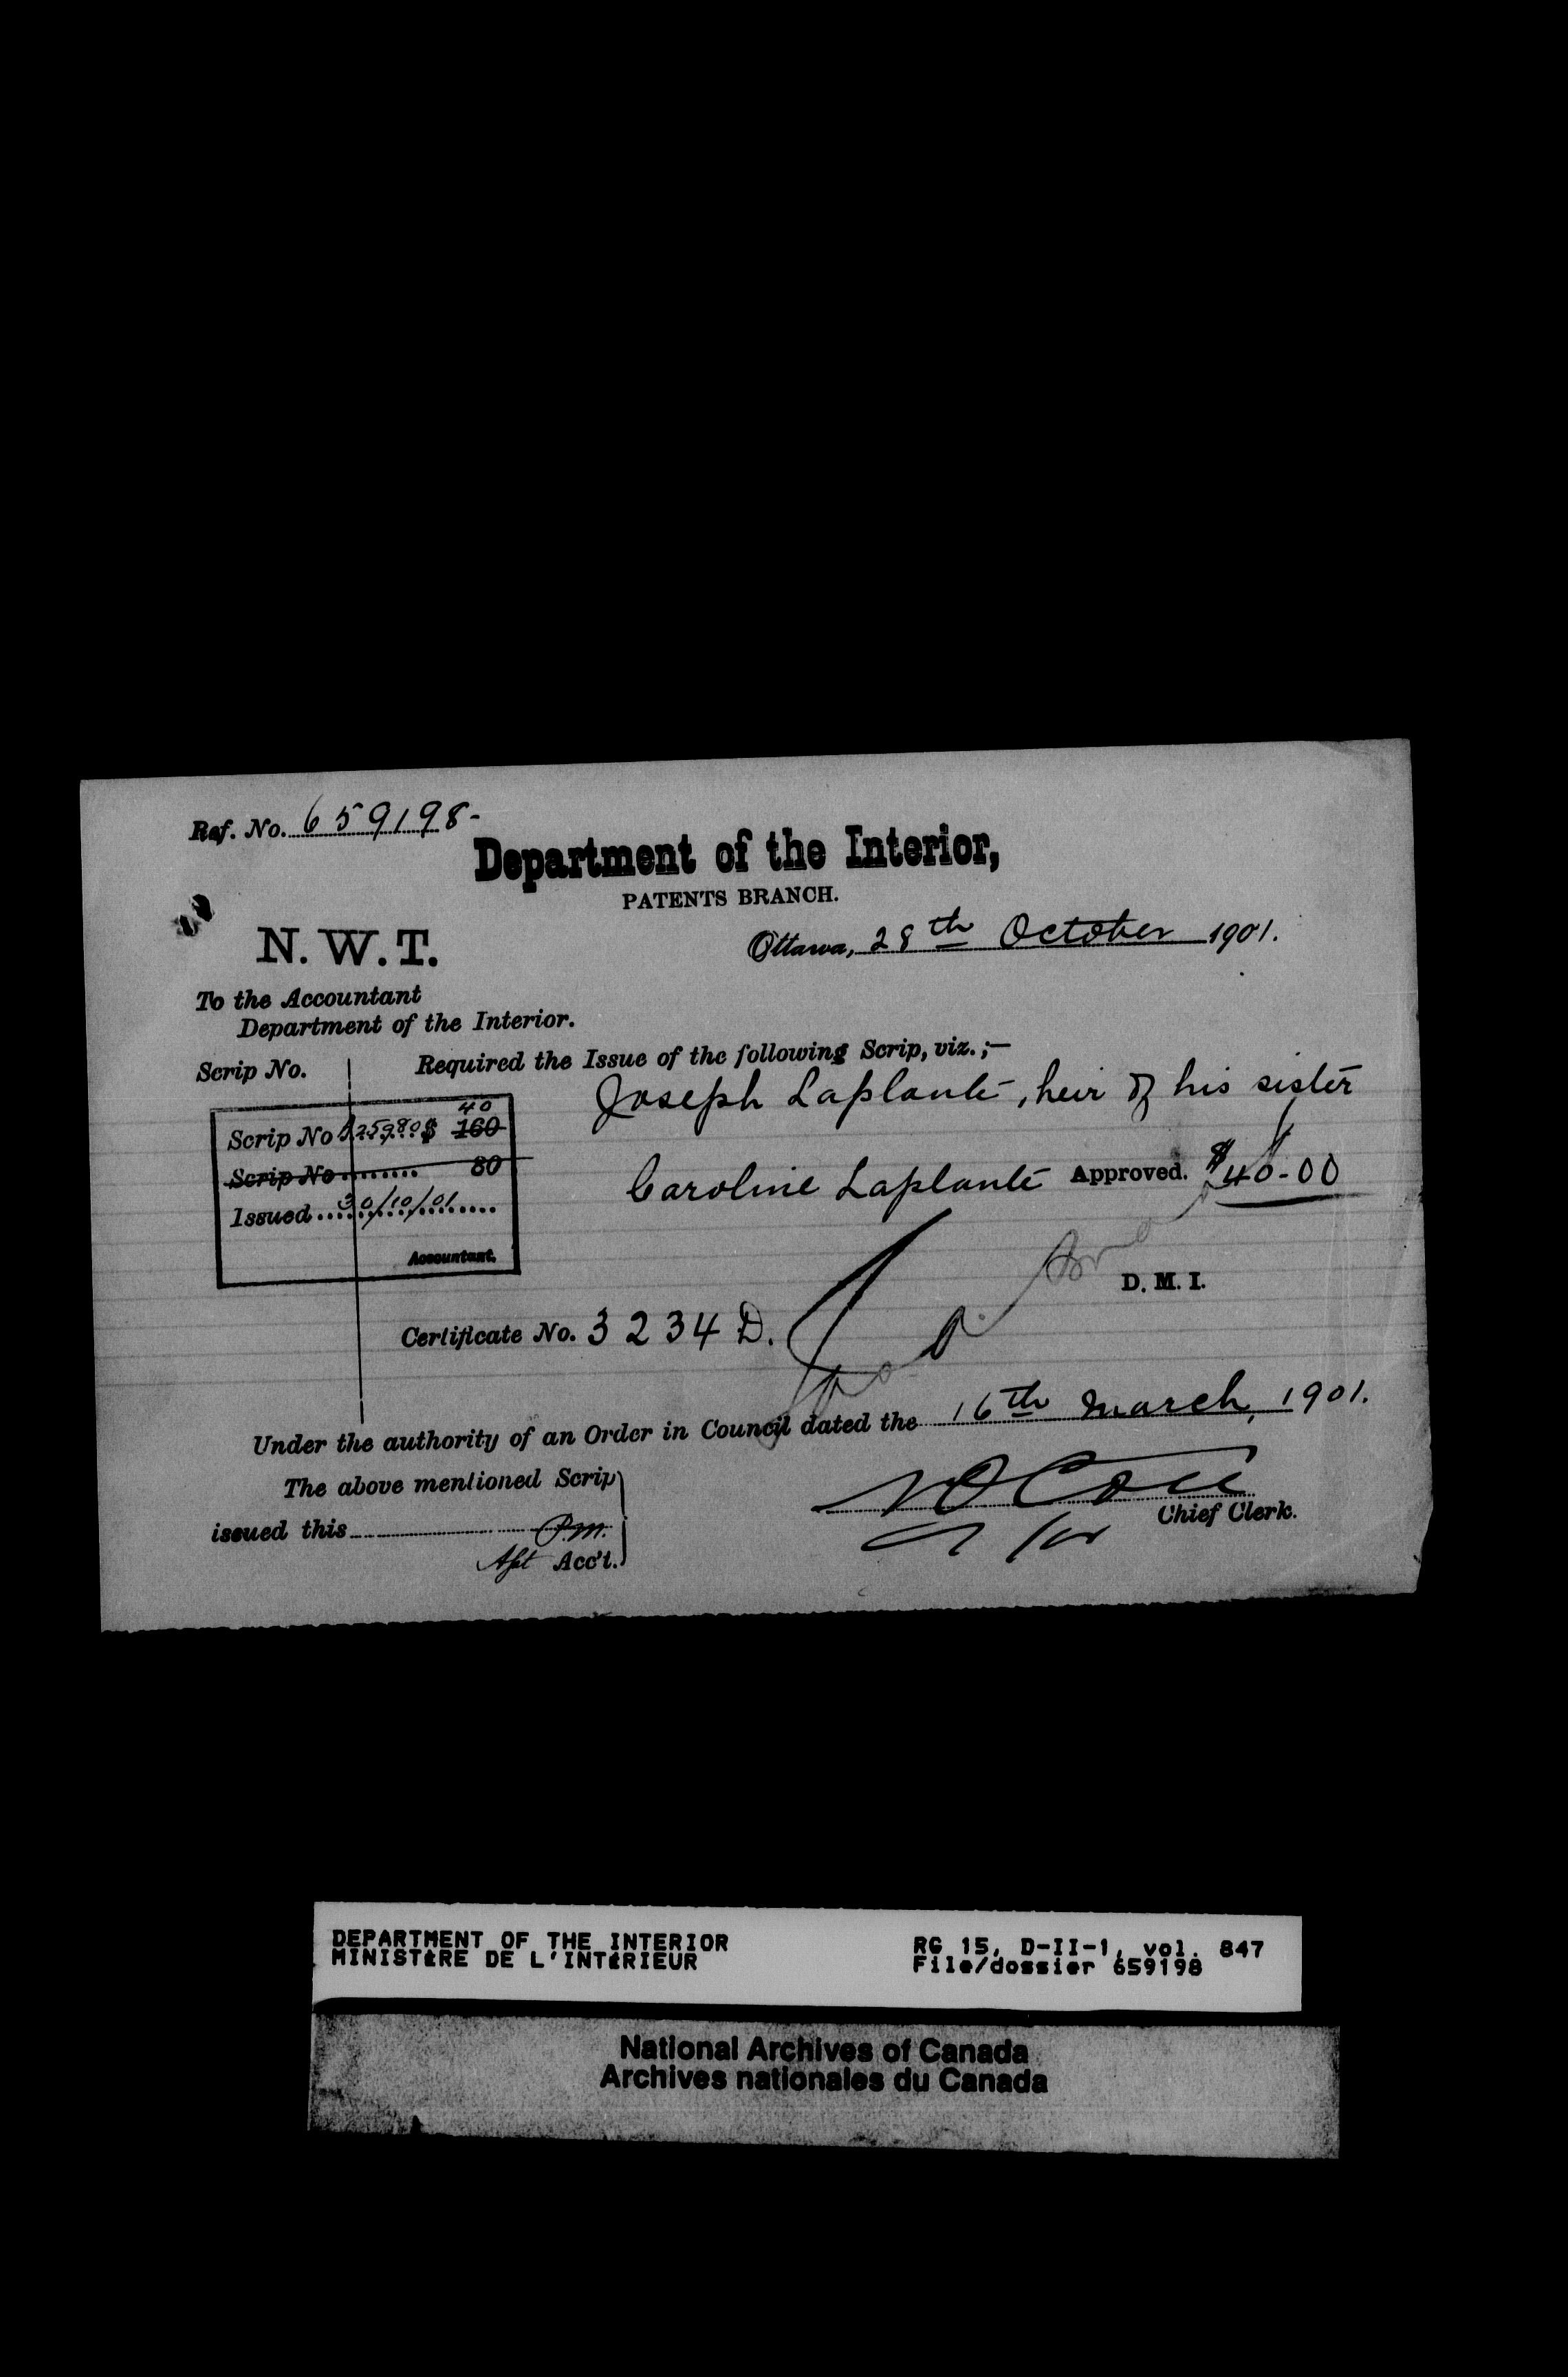 Ref. No. 659198-
Department of the Interior,
PATENTS BRANCH.
N. W. T.
Ottawa, 28th October 1901.
To the Accountant
Department of the Interior.
Scrip No.
Required the Issue of the following Scrip, viz.;—
Joseph Laplante, heir of his sister
40
Scrip No $ 160
Scrip No ........ 80
Issued 30/10/01
Accountant.
Caroline Laplante Approved. $40-00
D. M. I.
Certificate No. 3234 D.
Under the authority of an Order in Council dated the 16th March, 1901.
The above mentioned Scrip
issued this P.M.
Asst Acc't.
Chief Clerk.
DEPARTMENT OF THE INTERIOR
MINISTÈRE DE L'INTÉRIEUR
RG 15, D-II-1, vol. 847
File/dossier 659198
National Archives of Canada
Archives nationales du Canada